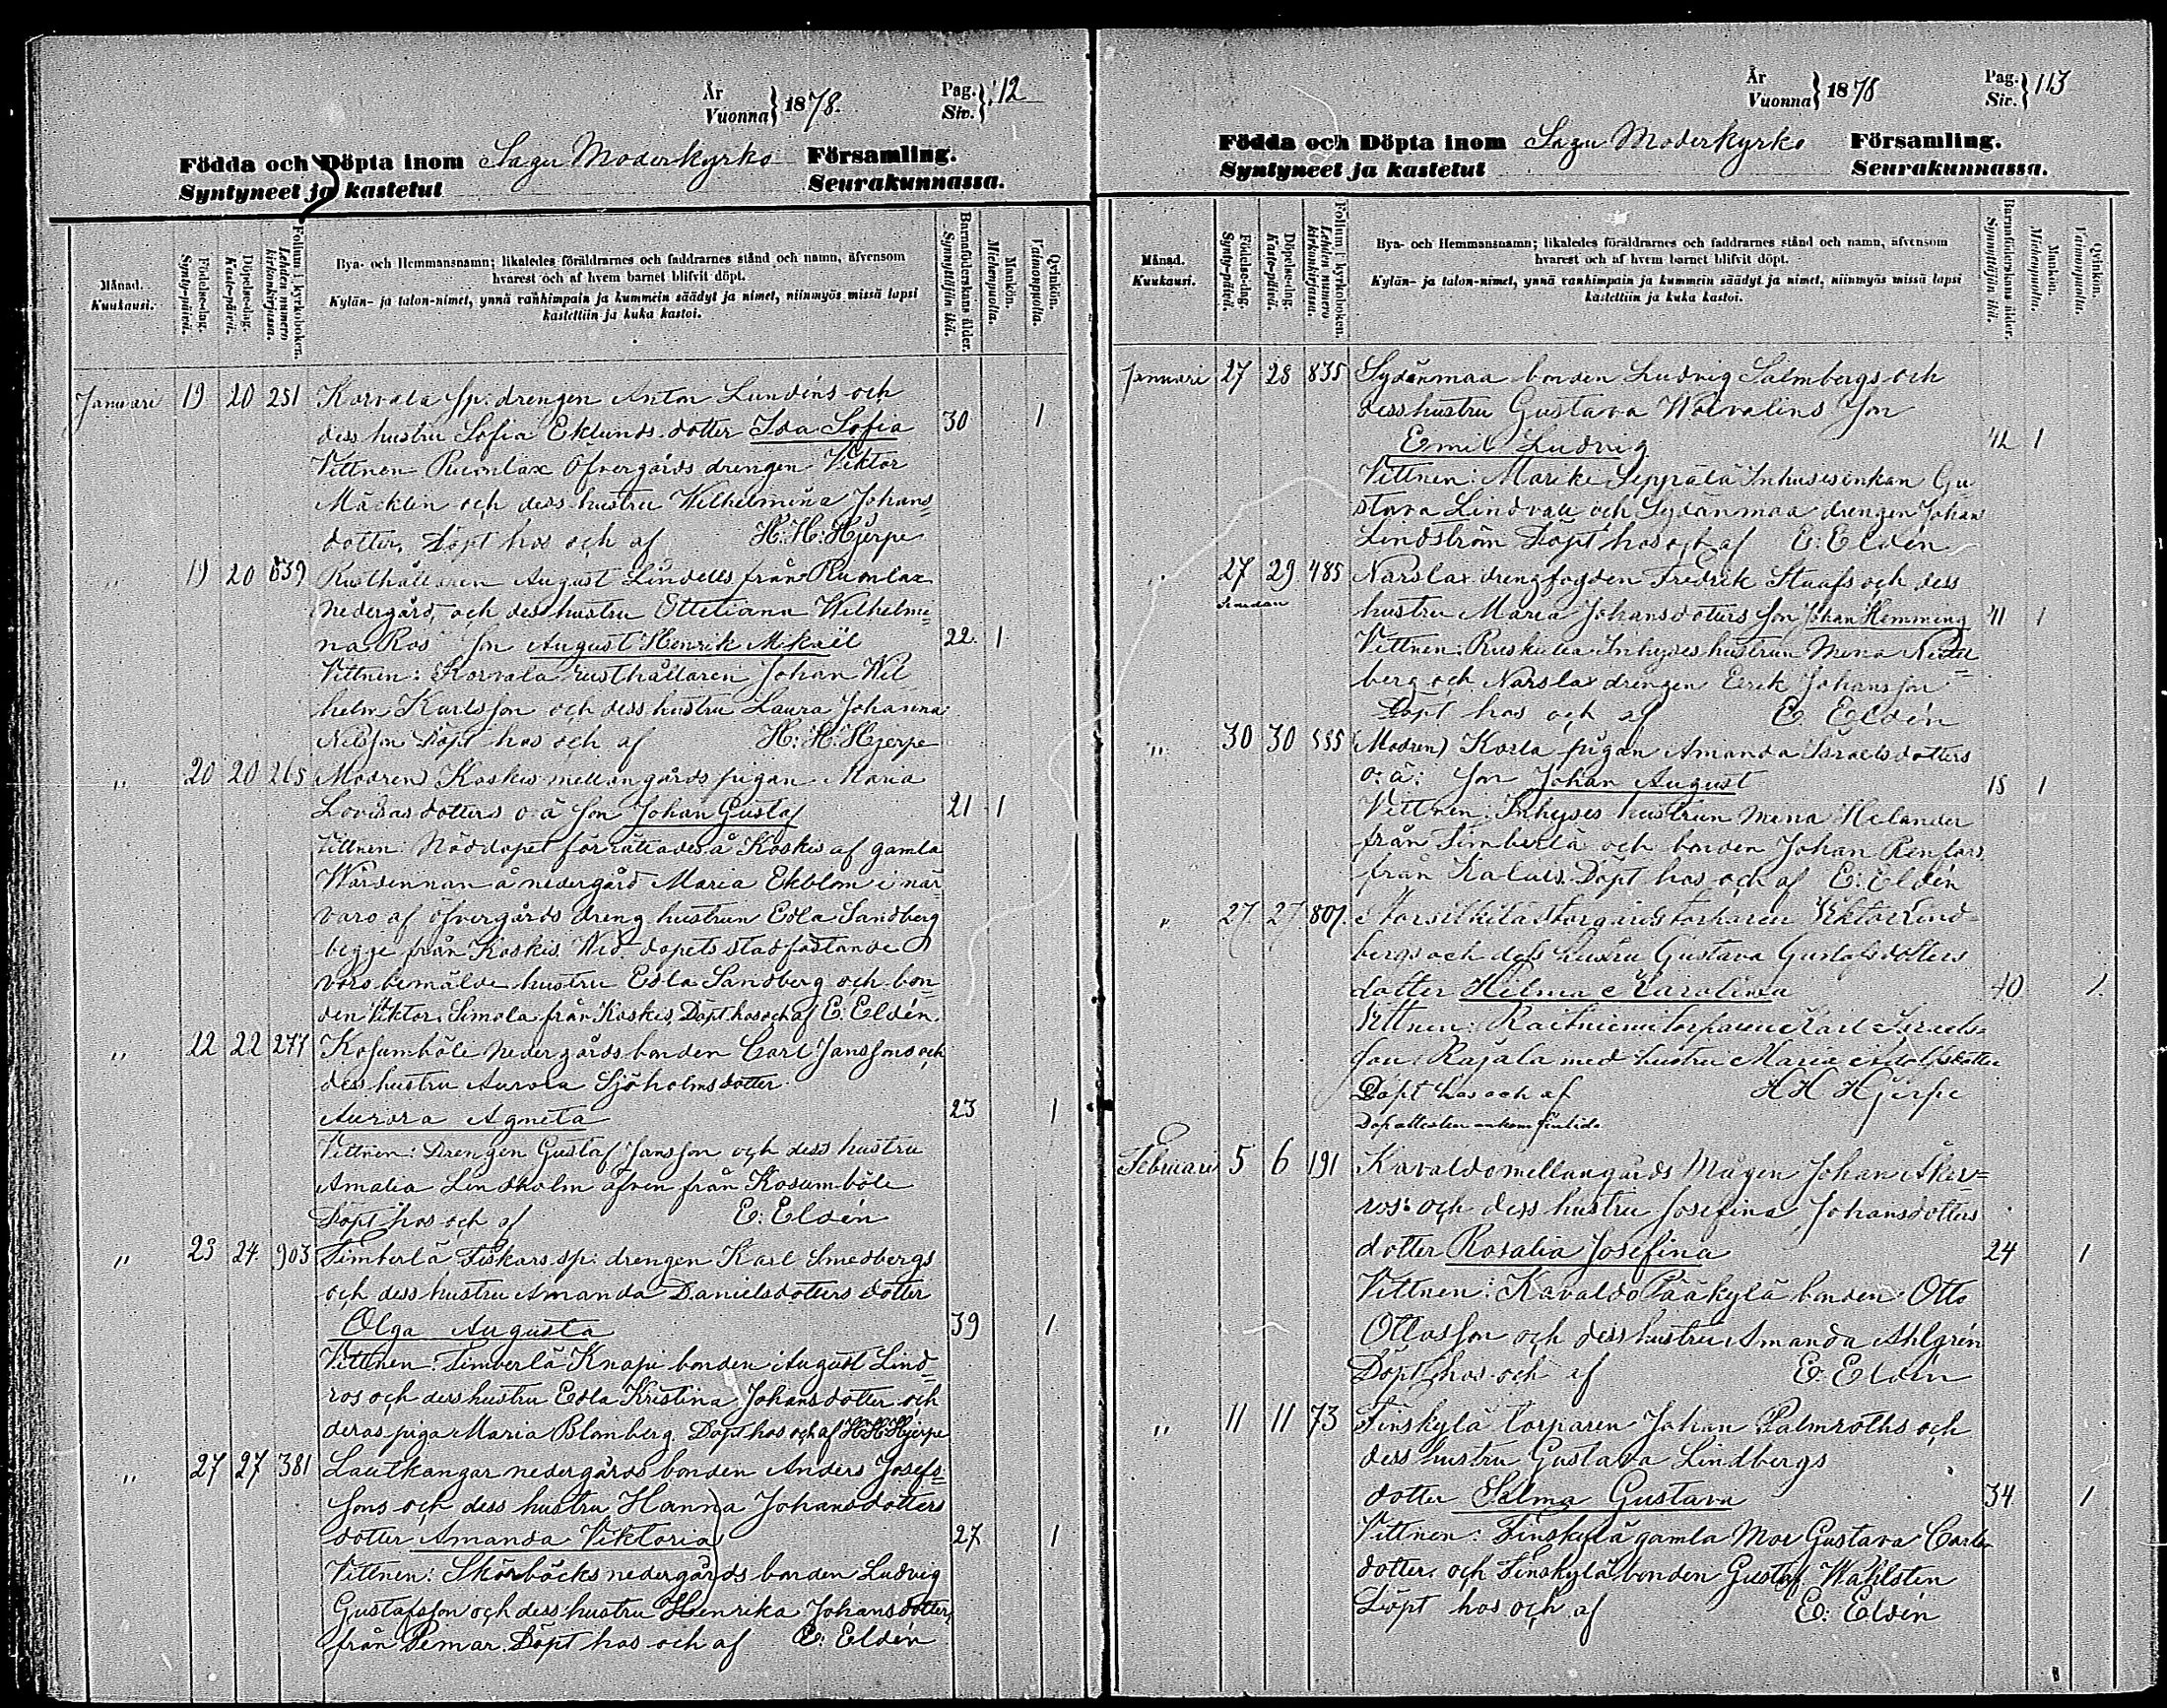 År
Vuonna } 1878.
Pag.
Siv. } 112
Födda och Döpta inom Sagu Moderkyrko Församling.
Syntyneet ja kastetut Seurakunnassa.
Månad.
Kuukausi.
Födelse-dag.
Synty-päivä.
Döpelse-dag.
Kaste-päivä.
Folium i kyrkoboken.
Lehden numero kirkonkirjassa.
Bya- och Hemmansnamn; likaledes föräldrarnes och faddrarnes stånd och namn, äfvensom
hvarest och af hvem barnet blifvit döpt.
Kylän- ja talon-nimet, ynnä vanhimpain ja kummein säädyt ja nimet, niinmyös missä lapsi
kastettiin ja kuka kastoi.
Barnaföderskans ålder.
Synnyttäjän ikä.
Mankön.
Miehenpuolia.
Qvinkön.
Vaimonpuolia.
Januari 19 20 251 Karvala sp. drengen Anton Lundéns och
dess hustru Sofia Eklunds dotter Ida Sofia 30 1
Vittnen Rumlax Öfvergårds drengen Viktor
Mäcklin och dess hustru Wilhelmina Johans=
dotter. Döpt hos och af H: H: Hjerpe
" 19 20 839 Rusthållaren August Lindells från Rumlax
nedergård, och dess hustru Ottiliana Wilhelmi=
na Ros son August Henrik Mikaël 22. 1
Vittnen: Korvala rusthållaren Johan Wil=
helm Karlsson och dess hustru Laura Johanna
Nilsson Döpt hos och af H: H: Hjerpe
" 20 20 265 (Modren) Koskis mellangårds pigan Maria
Lovisasdotters o. ä son Johan Gustaf 21 1
Vittnen: Nöddopet förrättades å Koskis af gamla
Wärdinnan å nedergård Maria Ekblom i när
varo af öfvergårds dreng hustrun Edla Sandberg
begge från Koskis. Wid dopets stadfästande
voro bemälde hustru Edla Sandberg och bon=
den Viktor Simola från Koskis, Döpt hos och af E. Eldén.
" 22 22 277 Kosumböle Nedergårds bonden Carl Janssons och
dess hustru Aurora Sjöholms dotter
Aurora Agneta 23 1
Vittnen: Drengen Gustaf Jansson och dess hustru
Amalia Lindholm äfven från Kosumböle
Döpt hos och af E: Eldén
" 23 24. 903 Timberlä Fiskars sp: drengen Karl Smedbergs
och dess hustru Amanda Danielsdotters dotter
Olga Augusta 39 1
Vittnen: Timberlä Knapi bonden August Lind=
ros och dess hustru Edla Kristina Johansdotter och
deras piga Maria Blomberg. Döpt hos och af H:H:Hjerpe
" 27 27 381 Lautkangar nedergårds bonden Anders Josefs=
sons och dess hustru Hanna Johansdotters
dotter Amanda Viktoria 27 1
Vittnen: Skörböcks nedergårds bonden Ludvig
Gustafsson och dess hustru Henrika Johansdotter,
från Pemar. Döpt hos och af E: Eldén
År
Vuonna } 1878
Pag.
Siv. } 113
Födda och Döpta inom Sagu Moderkyrko Församling.
Syntyneet ja kastetut Seurakunnassa.
Månad.
Kuukausi.
Födelse-dag.
Synty-päivä.
Döpelse-dag.
Kaste-päivä.
Folium i kyrkoboken.
Lehden numero kirkonkirjassa.
Bya- och Hemmansnamn; likaledes föräldrarnes och faddrarnes stånd och namn, äfvensom
hvarest och af hvem barnet blifvit döpt.
Kylän- ja talon-nimet, ynnä vanhimpain ja kummein säädyt ja nimet, niinmyös missä lapsi
kastettiin ja kuka kastoi.
Barnaföderskans ålder.
Synnyttäjän ikä.
Mankön.
Miehenpuolia.
Qvinkön.
Vaimonpuolia.
Januari 27 28 835 Sydänmaa bonden Ludvig Salmbergs och
dess hustru Gustava Woivalins son
Emil Ludvig 42 1
Vittnen: Marike Seppälä Inhysesenkan Gu
stava Lindvall och Sydänmaa drengen Johan
Lindström Döpt hos och af E: Eldén
" 27 29 485 Narslax drengfogden Fredrik Staafs och dess
hustru Maria Johansdotters son Johan Hemming 41 1
Vittnen: Ruskulla Inhyses hustrun Mina
berg och Narslax drengen Erik Johansson
Döpt hos och af E. Eldén
" 30 30 535 (Modren) Karla pigan Amanda Israelsdotters
o: ä: son Johan August 18 1
Vittnen: Inhyses hustrun Mina Helander
från Timberlä och bonden Johan Renfors
från Kalais. Döpt hos och af E: Eldén
" 27 27 807. Storsilkilä Storgårds torparen Viktor Lind=
bergs och dess hustru Gustava Gustafsdotters
dotter Hilma Karolina 40 1.
Vittnen: Raitniemi torparen Karl Israels=
son Rajala med hustru Maria Adolfsdotter
Döpt hos och af H H Hjerpe
Dopattesten ankom
Februari 5 6 191 Kavaldo mellangårds Mågen Johan Åker=
ros: och dess hustru Josefina Johansdotters
dotter Rosalia Josefina 24 1
Vittnen: Kavaldo Pääkylä bonden Otto
Ottosson och dess hustru Amanda Ahlgrén
Döpt hos och af E: Eldén
" 11 11 73 Finskylä torparen Johan Palmroths och
dess hustru Gustava Lindbergs
dotter Selma Gustava 34 1
Vittnen: Finskylä gamla Mor Gustava Carls
dotter och Finskylä bonden Gustaf Wahlsten
Döpt hos och af E: Eldén